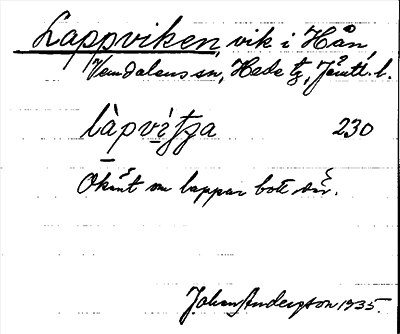 Lappviken, vik i Hån,
Vemdalens sn, Hede tg, Jämtl. l.
làpvìtja 230
Okänt om lappar bott där.
Johan Anderson 1935.